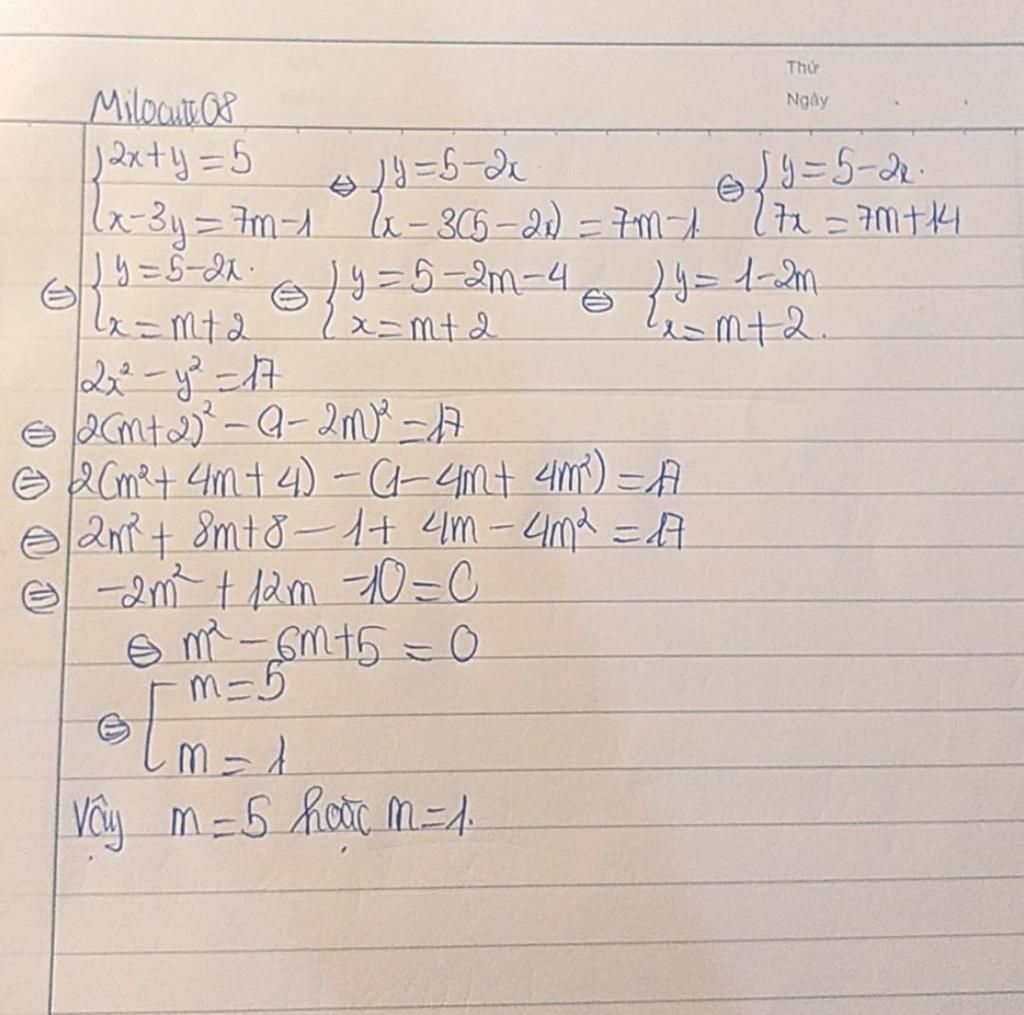 Thứ
Milocute08 Ngày
{2x+y=5 x-3y=7m-1 ⇔ {y=5-2x x-3(5-2x)=7m-1 ⇔ {y=5-2x. 7x=7m+14
⇔ {y=5-2x. x=m+2 ⇔ {y=5-2m-4 x=m+2 ⇔ {y=1-2m x=m+2.
2x²-y²=17
⇔ 2(m+2)²-(1-2m)²=17
⇔ 2(m²+4m+4)-(1-4m+4m²)=17
⇔ 2m²+8m+8-1+4m-4m²=17
⇔ -2m²+12m-10=0
⇔ m²-6m+5=0
⇔ [m=5 m=1
Vậy m=5 hoặc m=1.